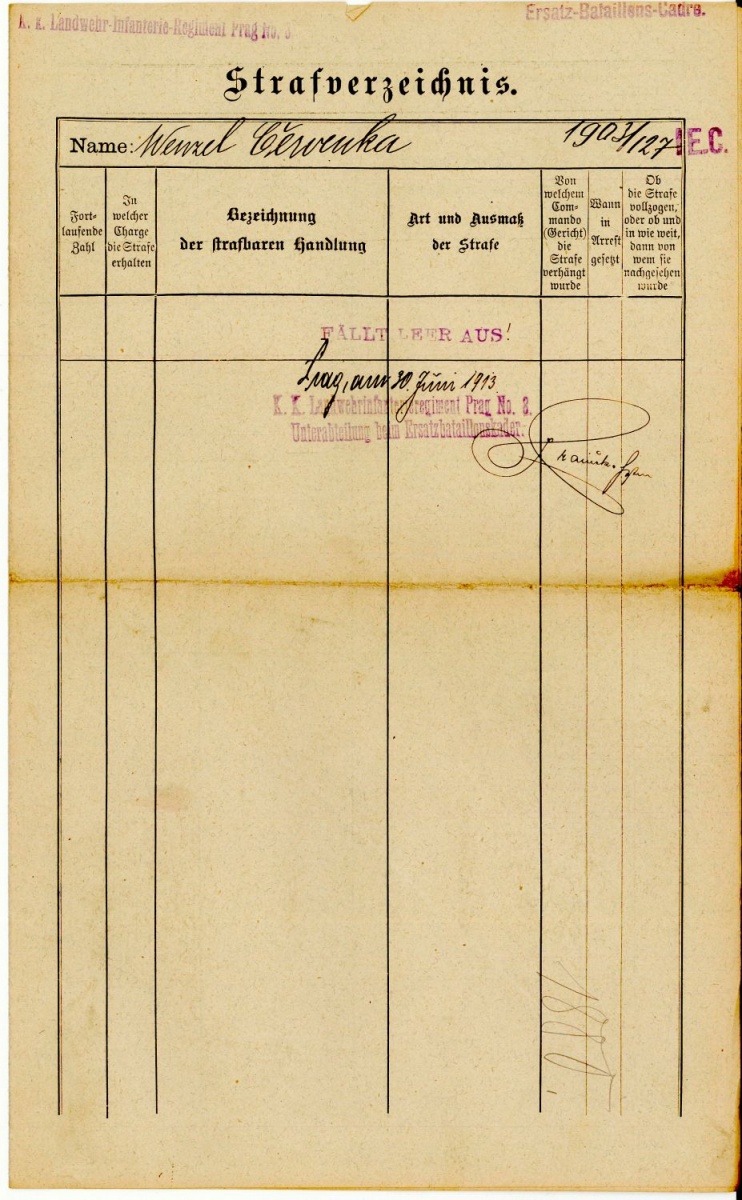 K. k. Landwehr-Infanterie-Regiment Prag No. 8.
Ersatz-Bataillons-Cadre.
Strafverzeichnis.
Name: Wenzel Červenka 1903/127 E.C.
Fort-
laufende
Zahl
In
welcher
Charge
die Strafe
erhalten
Bezeichnung
der strafbaren Handlung
Art und Ausmaß
der Strafe
Von
welchem
Com-
mando
(Gericht)
die
Strafe
verhängt
wurde
Wann
in
Arrest
gesetzt
Ob
die Strafe
vollzogen,
oder ob und
in wie weit,
dann von
wem sie
nachgesehen
wurde
FÄLLT LEER AUS!
Prag, am 30. Juni 1913
K. K. Landwehrinfanterieregiment Prag No. 8.
Unterabteilung beim Ersatzbataillonskader.